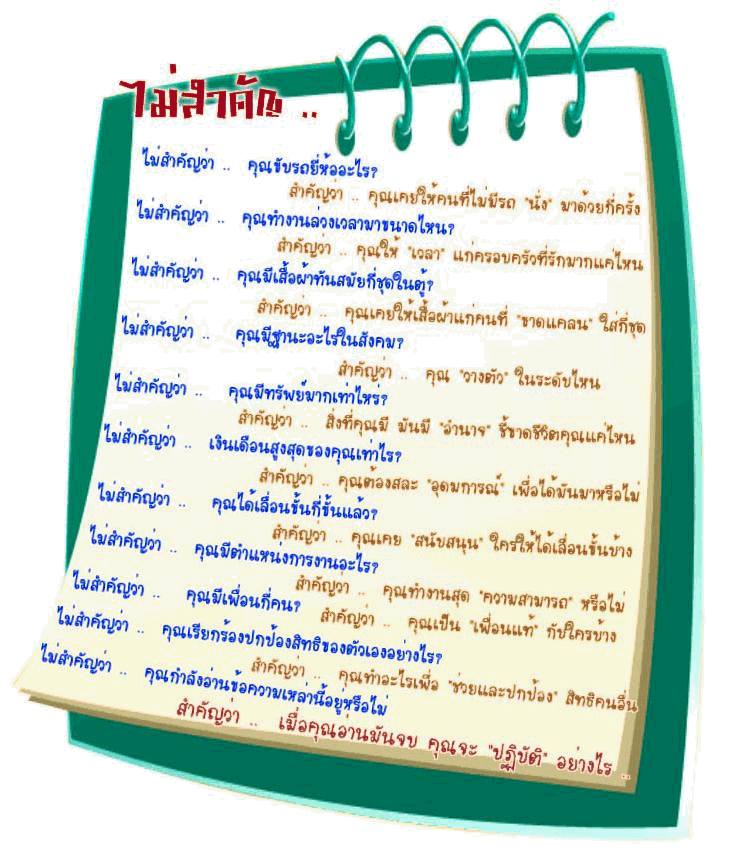 ไม่สำคัญ ..
ไม่สำคัญว่า .. คุณขับรถยี่ห้ออะไร?
สำคัญว่า .. คุณเคยให้คนที่ไม่มีรถ "นั่ง" มาด้วยกี่ครั้ง
ไม่สำคัญว่า .. คุณทำงานล่วงเวลามาขนาดไหน?
สำคัญว่า .. คุณให้ "เวลา" แก่ครอบครัวที่รักมากแค่ไหน
ไม่สำคัญว่า .. คุณมีเสื้อผ้าทันสมัยกี่ชุดในตู้?
สำคัญว่า .. คุณเคยให้เสื้อผ้าแก่คนที่ "ขาดแคลน" ใส่กี่ชุด
ไม่สำคัญว่า .. คุณมีฐานะอะไรในสังคม?
สำคัญว่า .. คุณ "วางตัว" ในระดับไหน
ไม่สำคัญว่า .. คุณมีทรัพย์มากเท่าไหร่?
สำคัญว่า .. สิ่งที่คุณมี มันมี "อำนาจ" ชี้ขาดชีวิตคุณแค่ไหน
ไม่สำคัญว่า .. เงินเดือนสูงสุดของคุณเท่าไร?
สำคัญว่า .. คุณต้องสละ "อุดมการณ์" เพื่อได้มันมาหรือไม่
ไม่สำคัญว่า .. คุณได้เลื่อนขั้นกี่ขั้นแล้ว?
สำคัญว่า .. คุณเคย "สนับสนุน" ใครให้ได้เลื่อนขั้นบ้าง
ไม่สำคัญว่า .. คุณมีตำแหน่งการงานอะไร?
สำคัญว่า .. คุณทำงานสุด "ความสามารถ" หรือไม่
ไม่สำคัญว่า .. คุณมีเพื่อนกี่คน?
สำคัญว่า .. คุณเป็น "เพื่อนแท้" กับใครบ้าง
ไม่สำคัญว่า .. คุณเรียกร้องปกป้องสิทธิของตัวเองอย่างไร?
สำคัญว่า .. คุณทำอะไรเพื่อ "ช่วยและปกป้อง" สิทธิคนอื่น
ไม่สำคัญว่า .. คุณกำลังอ่านข้อความเหล่านี้อยู่หรือไม่
สำคัญว่า .. เมื่อคุณอ่านมันจบ คุณจะ "ปฏิบัติ" อย่างไร ..